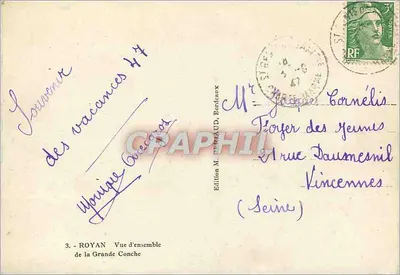 Souvenir
des vacances 47
Monique
3. - ROYAN Vue d'ensemble
de la Grande Conche
Edition M. Bordeaux
RF
47
Mr Cornélis
Foyer des jeunes
21 rue Daumesnil
Vincennes
(Seine)
CPAPHIL